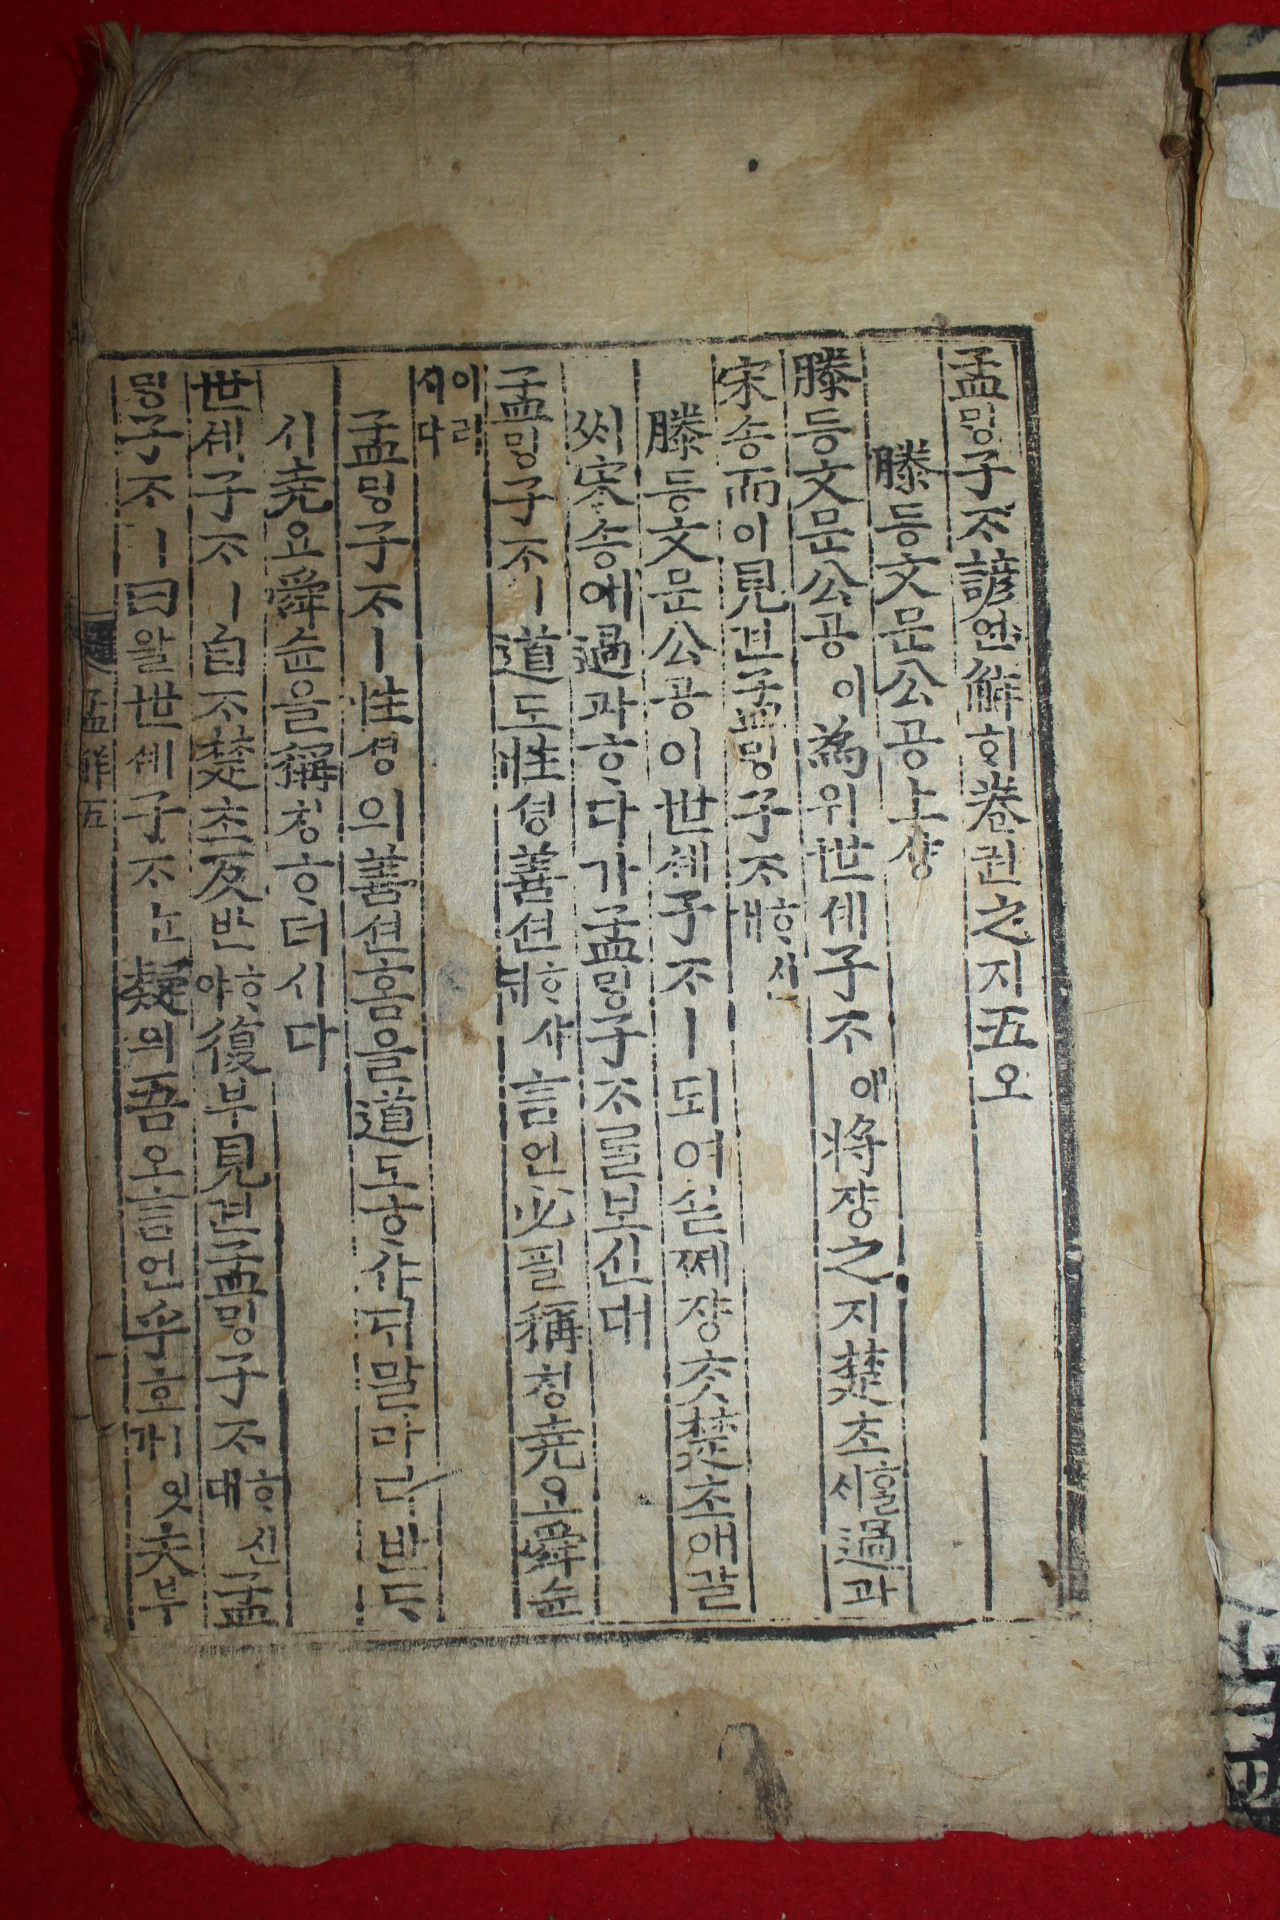 孟ᄆᆡᆼ子ᄌᆞ諺언解ᄒᆡ卷권之지五오
滕등文문公공上샹
滕등文문公공이爲위世셰子ᄌᆞ애將쟝之지楚초ᄒᆞᆯ시過과
宋송而이見견孟ᄆᆡᆼ子ᄌᆞᄒᆞ시대
滕등文문公공이世셰子ᄌᆞㅣ되여실쩨쟝ᄎᆞᆺ楚초애갈
ᄉᆡ宋송에過과ᄒᆞ다가孟ᄆᆡᆼ子ᄌᆞ를보신대
孟ᄆᆡᆼ子ᄌᆞㅣ道도性셩善션ᄒᆞ샤ᄃᆡ言언必필稱칭堯요舜슌
이러시다
孟ᄆᆡᆼ子ᄌᆞㅣ性셩의善션홈을道도ᄒᆞ샤ᄃᆡ말마다반ᄃᆞ
시堯요舜슌을稱칭ᄒᆞ더시다
世셰子ᄌᆞㅣ自ᄌᆞ楚초反반ᄒᆞ야復부見견孟ᄆᆡᆼ子ᄌᆞᄒᆞ신대孟
ᄆᆡᆼ子ᄌᆞㅣ曰왈世셰子ᄌᆞᄂᆞᆫ疑의吾오言언乎호ㅣ잇가夫부
孟解五